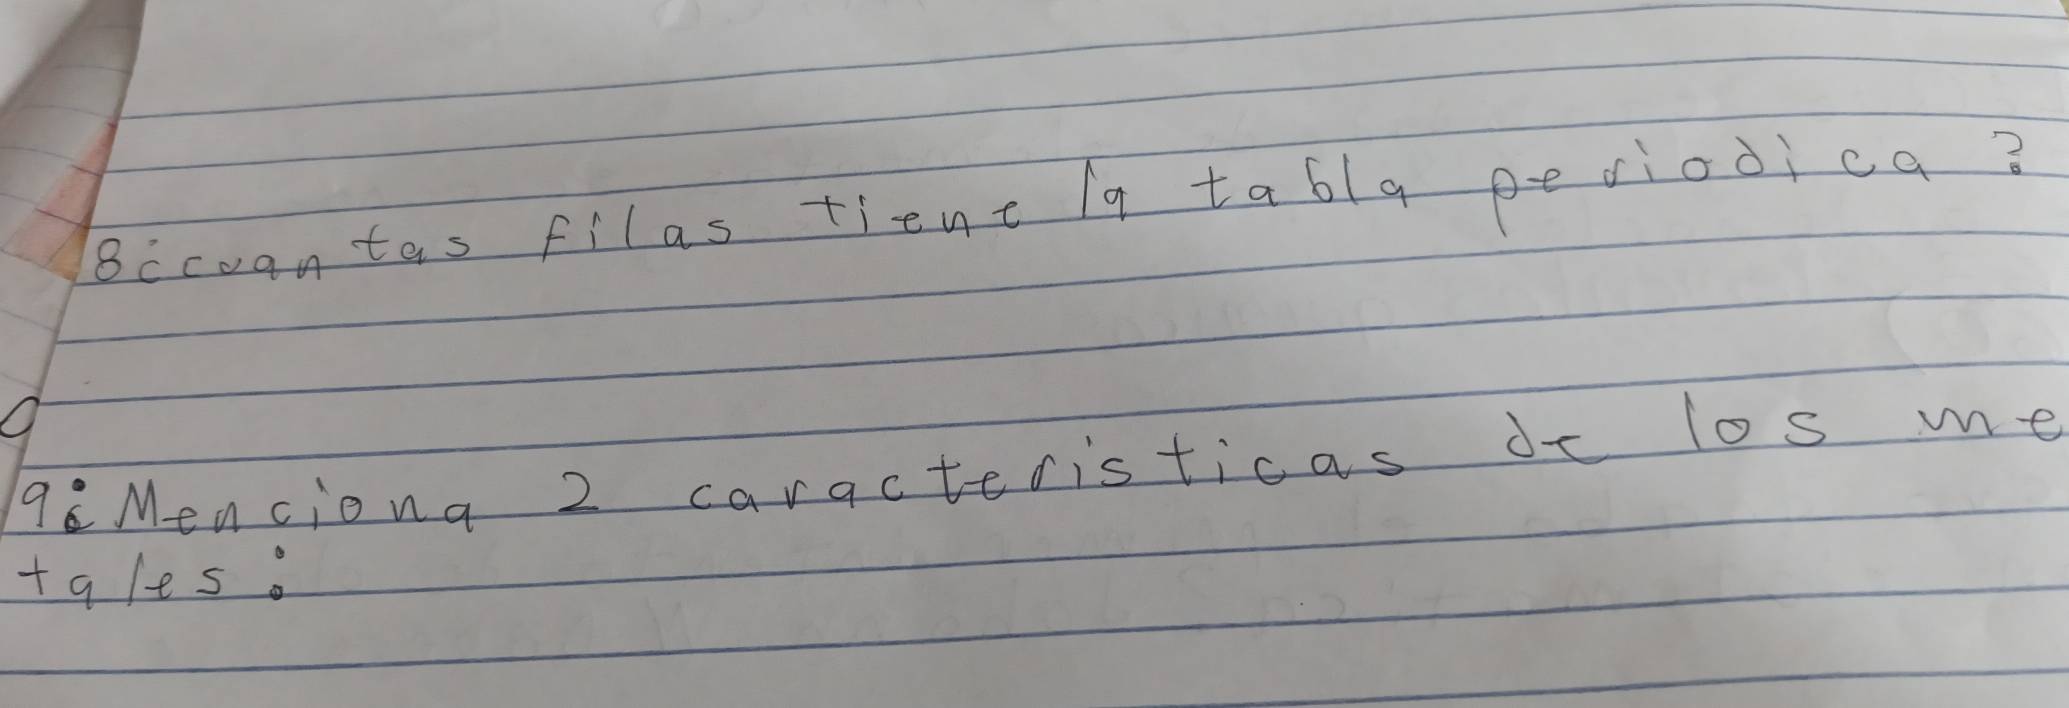 8¿cuantas filas tiene la tabla periodica?
9¿Menciona 2 caracteristicas de los me
tales: